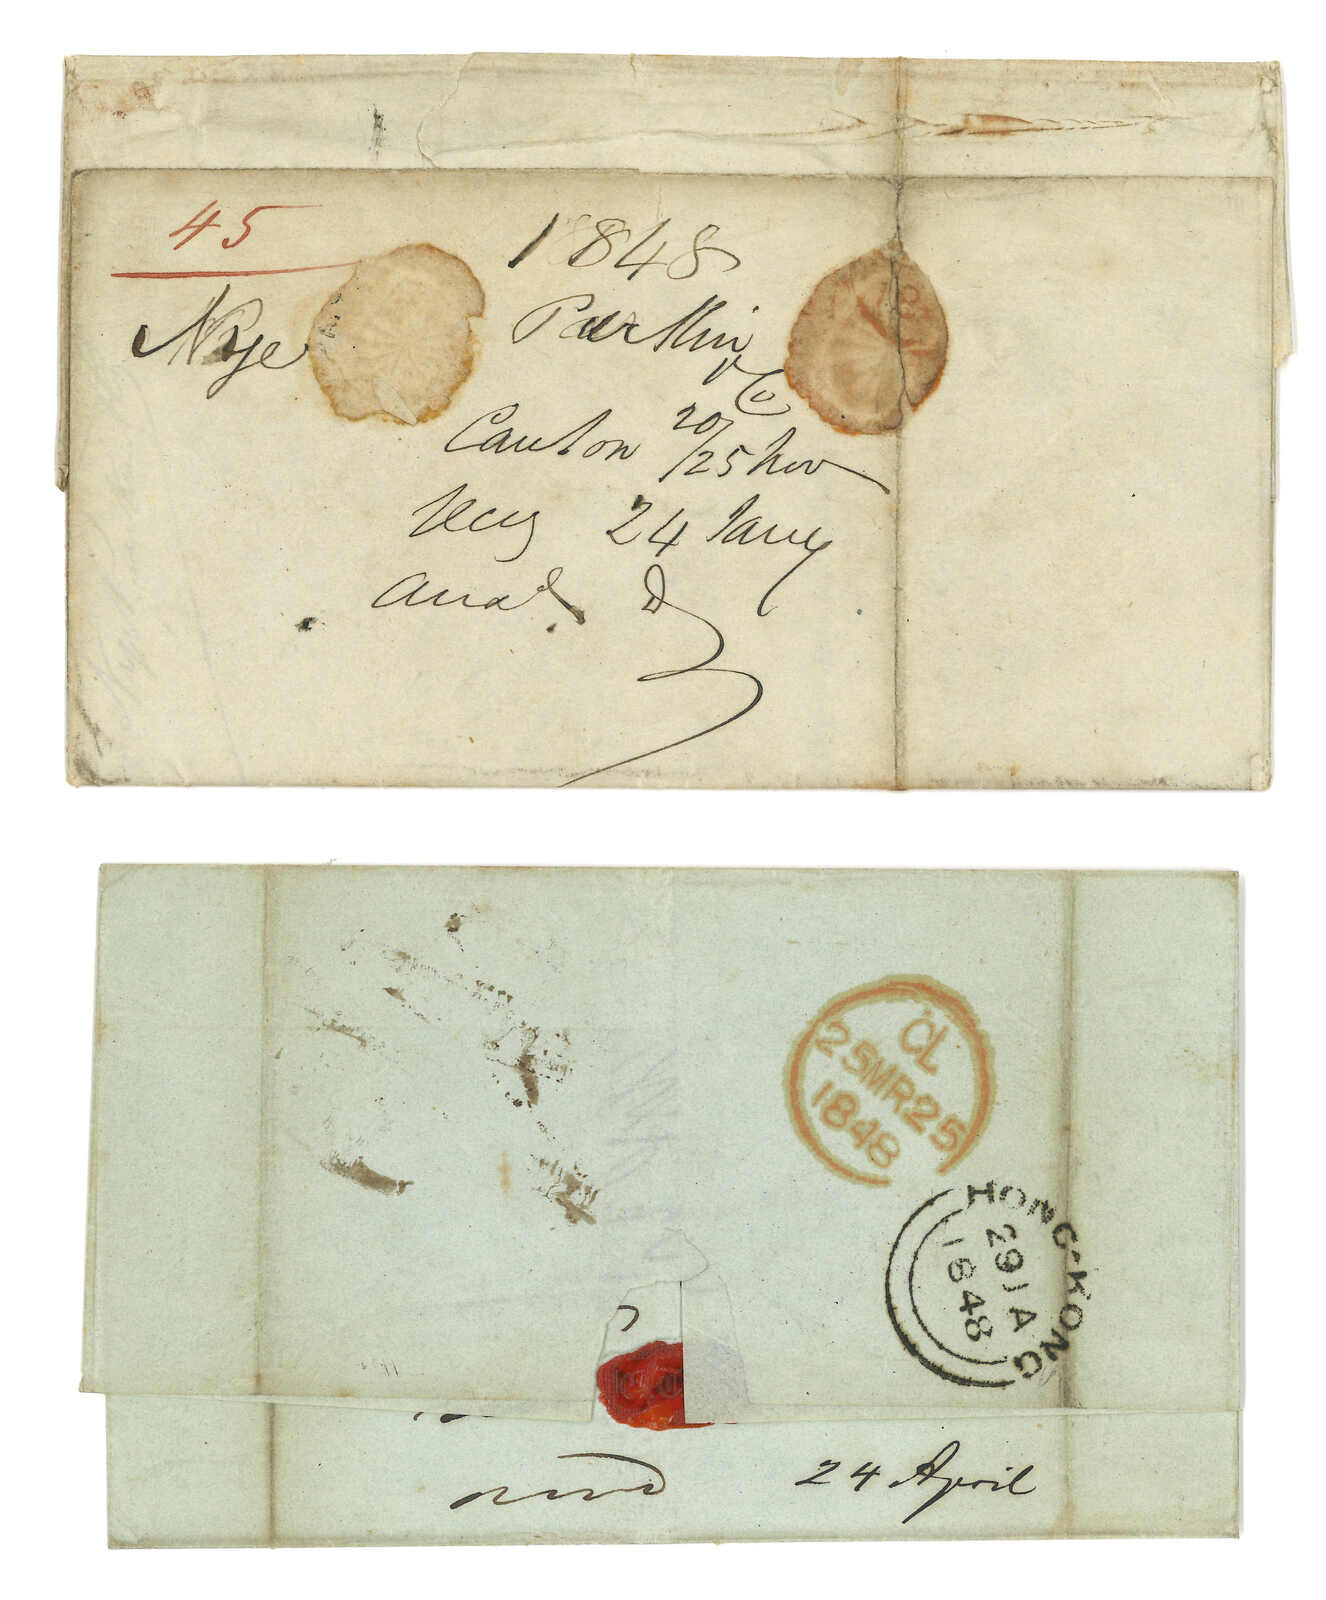 45
1848
Nye Parkin
& Co
Canton 20/25 Nov
Recd 24 Jany
Ansd D
CL
25MR25
1848
HONG-KONG
29 JA
1848
24 April